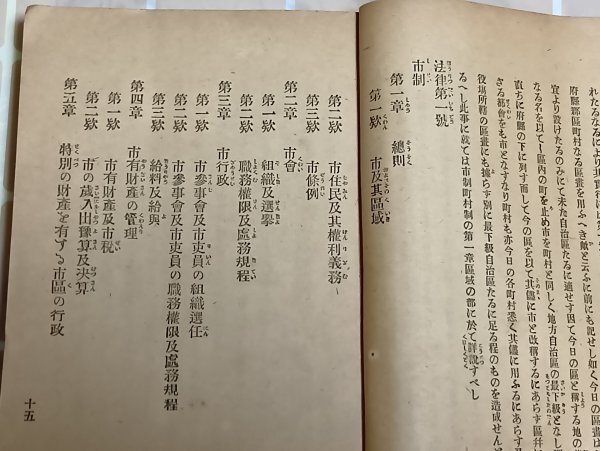 れたるによりて其實行は
府縣郡區町村なる區畫を用ふへき敵と云ふに前にも記せし如く今日の區畫は
宜より設けたるのみにて未た自治區たるに適せす因て今日の區と稱する地の
なる名を以て一區内の町を止め市を町村と同しく地方自治區の最下級となし
直ちに府縣の下に列す而して今の區を以て其儘に市と改稱するにあらす區幷
さる都會をも市となすなり町村も亦今日の各町村悉く其儘に用ふるにあらす
役塲所轄の區畫にも據らす別に最下級自治區たるに足る程のものを造成せん
るへし此事に就ては市制町村制の第一章區域の部に於て詳說すへし
法律第一號
市制
第一章 總則
第一欵 市及其區域
第二欵 市住民及其權利義務
第三欵 市條例
第二章 市會
第一欵 組織及選擧
第二欵 職務權限及處務規程
第三章 市行政
第一欵 市參事會及市吏員の組織選任
第二欵 市參事會及市吏員の職務權限及處務規程
第三欵 給料及給與
第四章 市有財產の管理
第一欵 市有財產及市税
第二欵 市の歲入出豫算及決算
第五章 特別の財產を有する市區の行政
十五